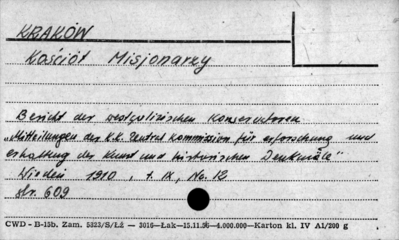 KRAKÓW
Kościół Misjonarzy
Bericht der westgalizischen Konservatoren
„Mitteilungen der K.K. Zentral Kommission für erforschung und
erhaltung der Kunst und historischen Denkmäle"
Wiedeń 1910, t. IX, No. 12
str. 609
CWD - B-15b. Zam. 5323/S/Łż — 3016—Łak—15.11.56—4.000.000—Karton kl. IV A1/200 g